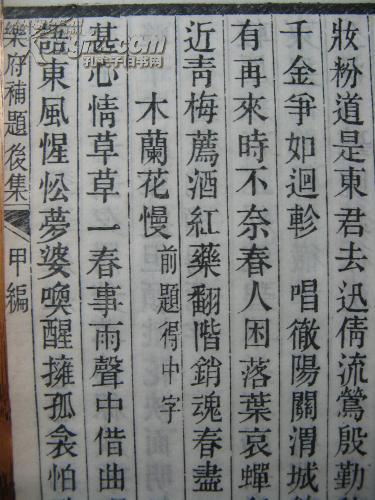 妝粉道是東君去迅倩流鶯殷勤
千金爭如迴軫　唱徹陽關渭城
有再來時不奈春人困落葉哀蟬
近青梅薦酒紅藥翻階銷魂春盡
木蘭花慢　前題得中字
甚心情草草一春事雨聲中借曲
東風惺忪夢婆喚醒擁孤衾怕
樂府補題後集　甲編
孔夫子旧书网